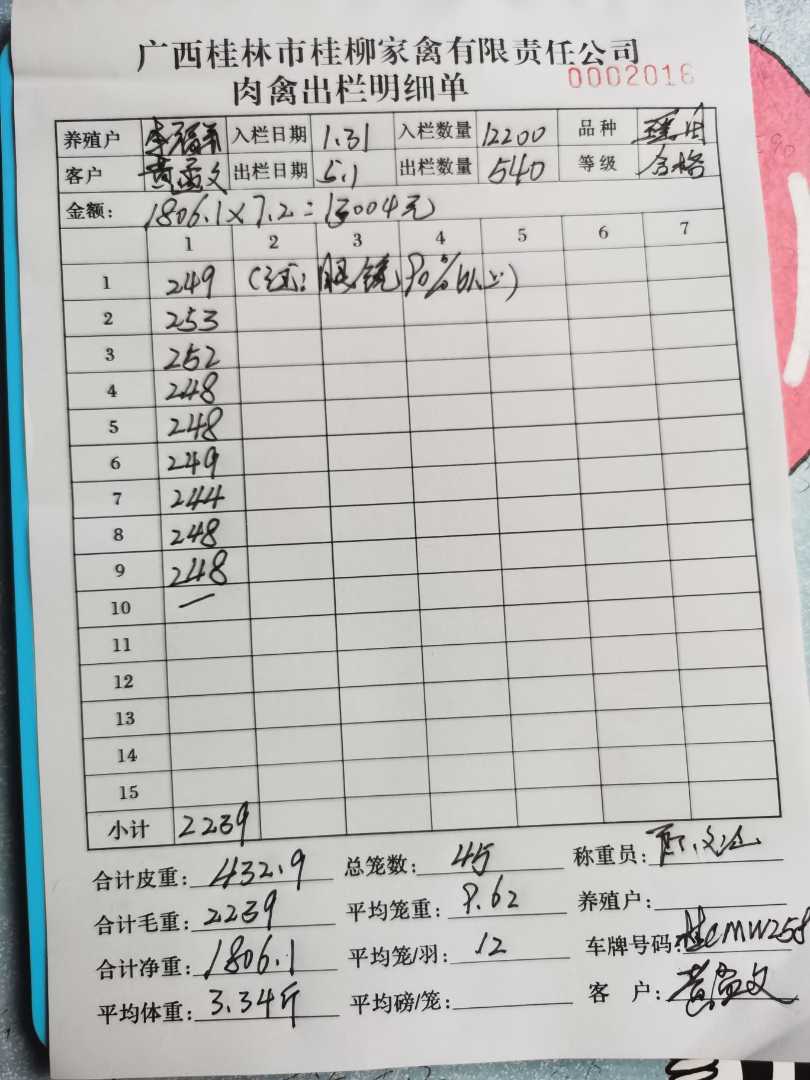 广西桂林市桂柳家禽有限责任公司
肉禽出栏明细单 0002016
养殖户 入栏日期 1.31 入栏数量 12200 品种
客户 黄 文 出栏日期 5.1 出栏数量 540 等级 合格
金额: 1806.1×7.2=13004元
1 2 3 4 5 6 7
1 249 (注: 眼镜90%以上)
2 253
3 252
4 248
5 248
6 249
7 244
8 248
9 248
10 一
11
12
13
14
15
小计 2239
合计皮重: 432.9 总笼数: 45 称重员:
合计毛重: 2239 平均笼重: 9.62 养殖户:
合计净重: 1806.1 平均笼/羽: 12 车牌号码: 桂CMW258
平均体重: 3.34斤 平均磅/笼: 客 户: 黄 文